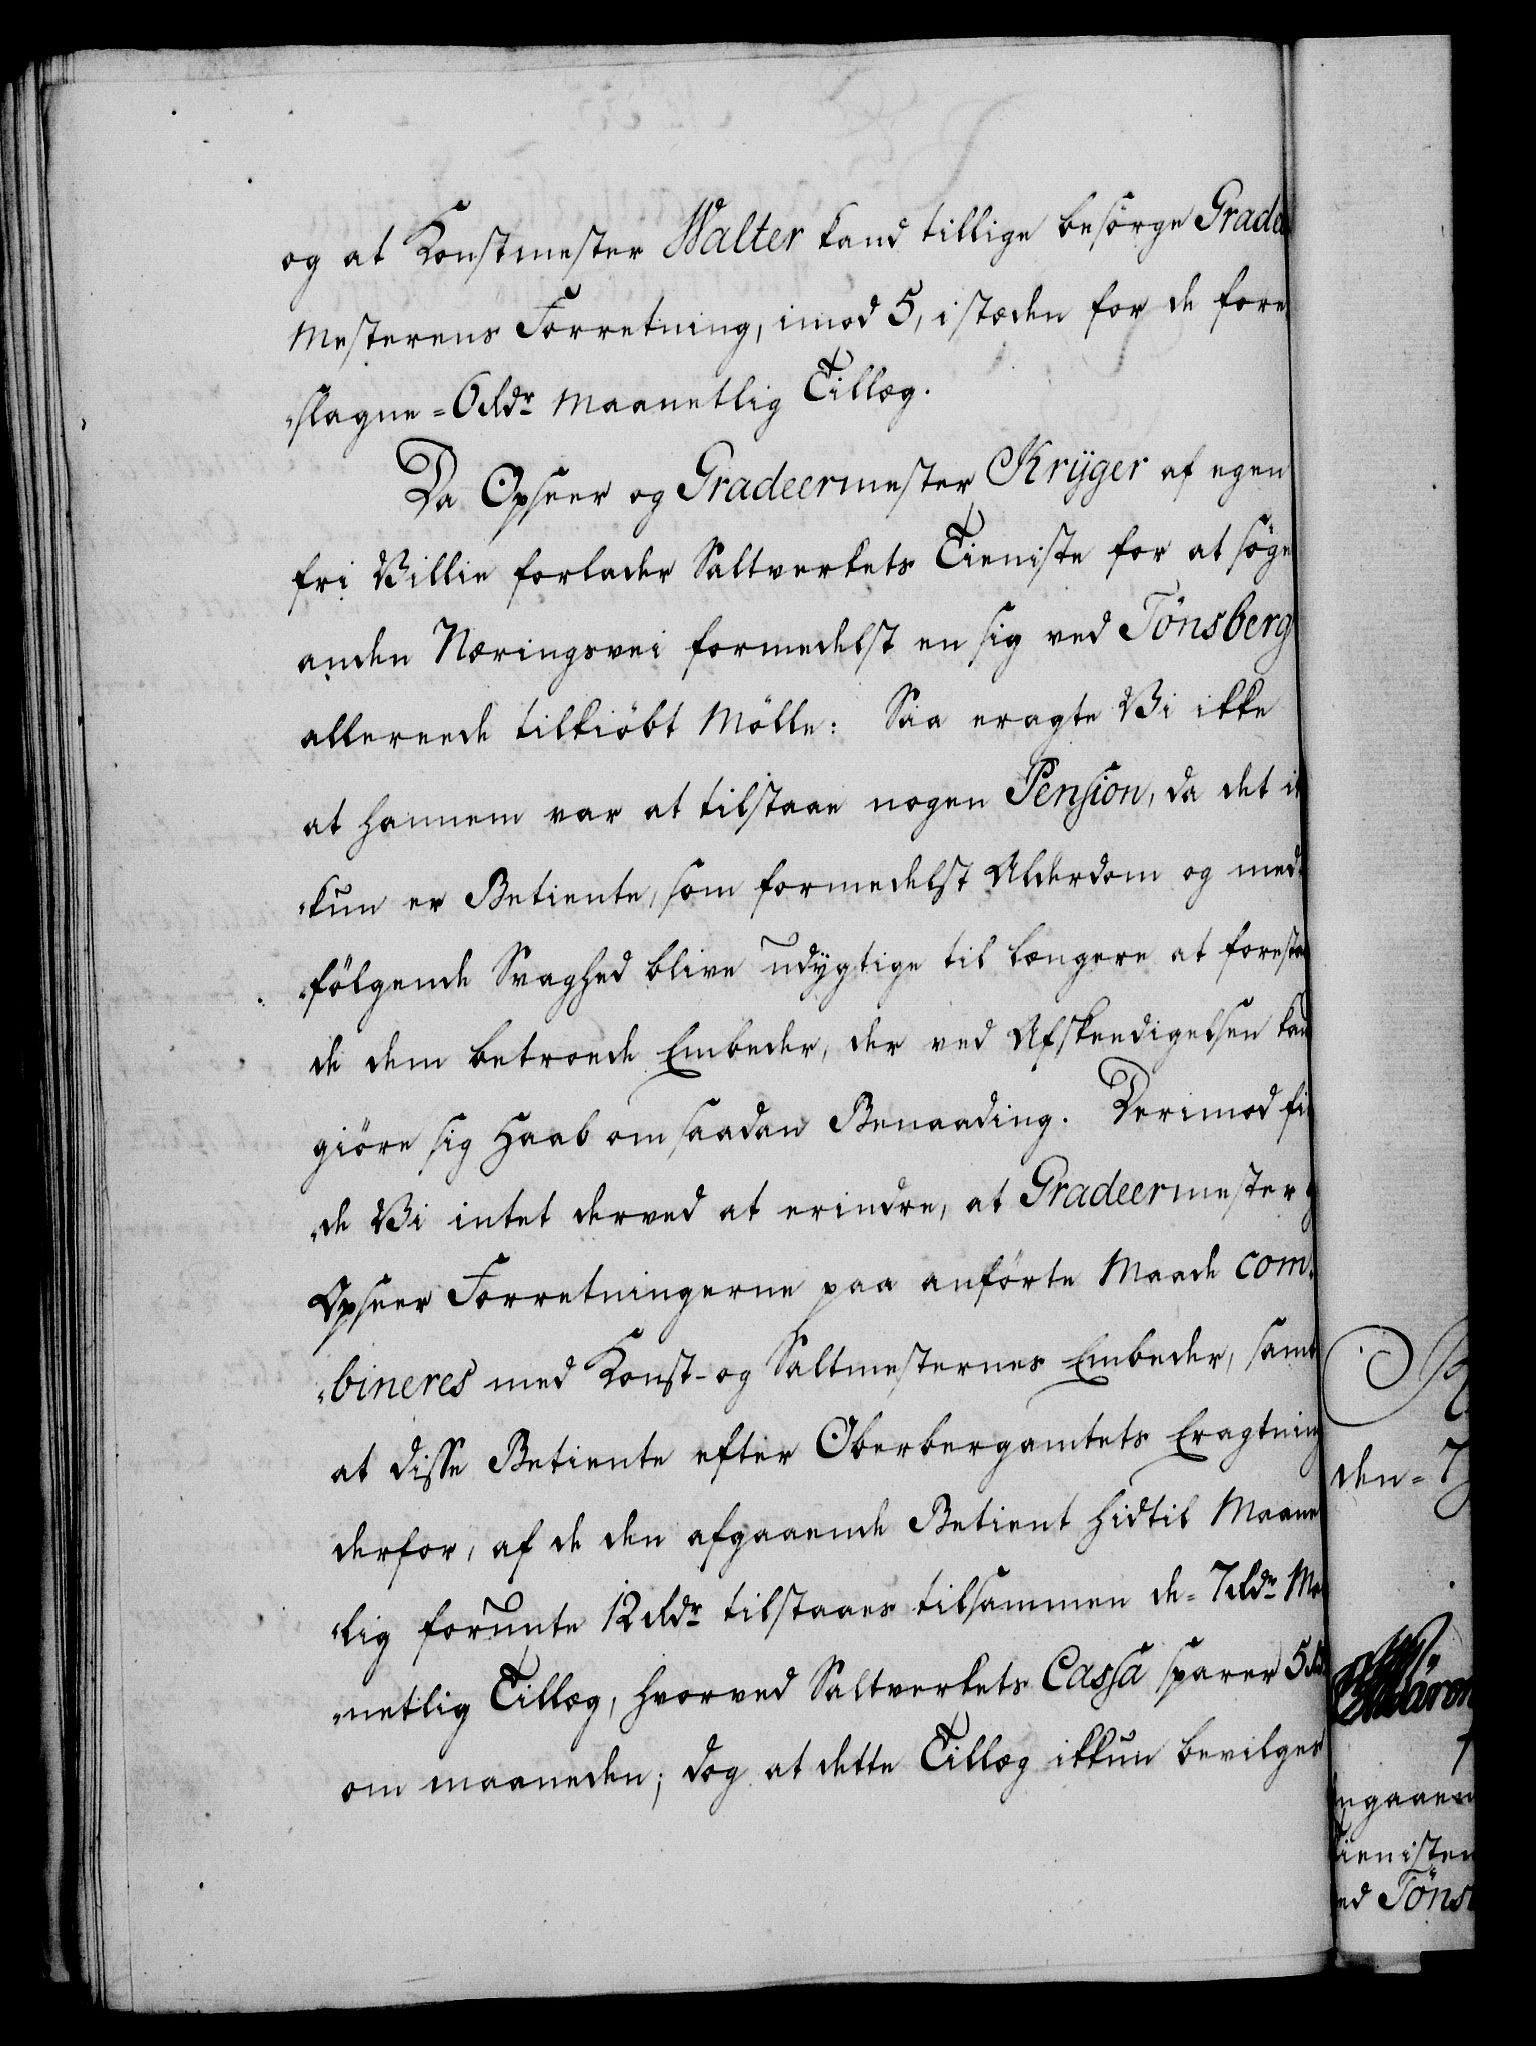 og at Konstmester Walter kand tillige besörge Gradee
Mesterens Forretning, imod 5, i stæden for de fore
„slagne = 6 Rdr Maanetlig Tillæg.
Da Opseer og Gradeermester Krÿger af egen
fri Villie forlader Saltverkets Tieniste for at söge
anden Næringsvei formedelst en sig ved Tönsberg
allereede tilkiöbt Mölle: Saa eragte Vi ikke
at hannem var at tilstaae nogen Pension, da det ik
„kun er Betiente, som formedelst Alderdom og med
„fölgende Svaghed blive udÿgtige til længere at foresta
de dem betroede Embeder, der ved Afskeedigelsen kan
giöre sig Haab om saadan Benaading. Derimod fi
„de Vi intet derved at erindre, at Gradeermester
Opseer Forretningerne paa anförte Maade com
„bineres med Konst- og Saltmesternes Embeder, samt
at disse Betiente efter Oberbergamtets Eragtning
derfor, af de den afgaaende Betient hidtil Maane
„lig forunte 12 Rdr tilstaaes tilsammen de = 7 Rdr Ma
„netlig Tillæg, hvorved Saltverkets Cassa sparer 5 Rd
om maaneden; dog at dette Tillæg ikkun bevilges
den = 7
ngaaen
ienisten
ed Töns